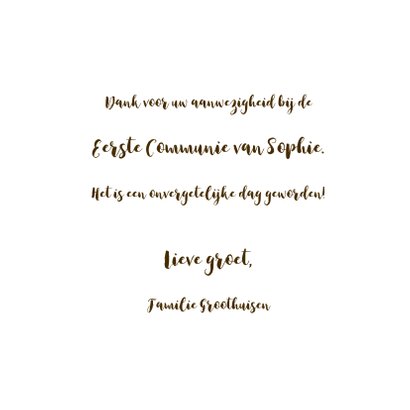 Dank voor uw aanwezigheid bij de
Eerste Communie van Sophie.
Het is een onvergetelijke dag geworden!
Lieve groet,
Familie Groothuisen